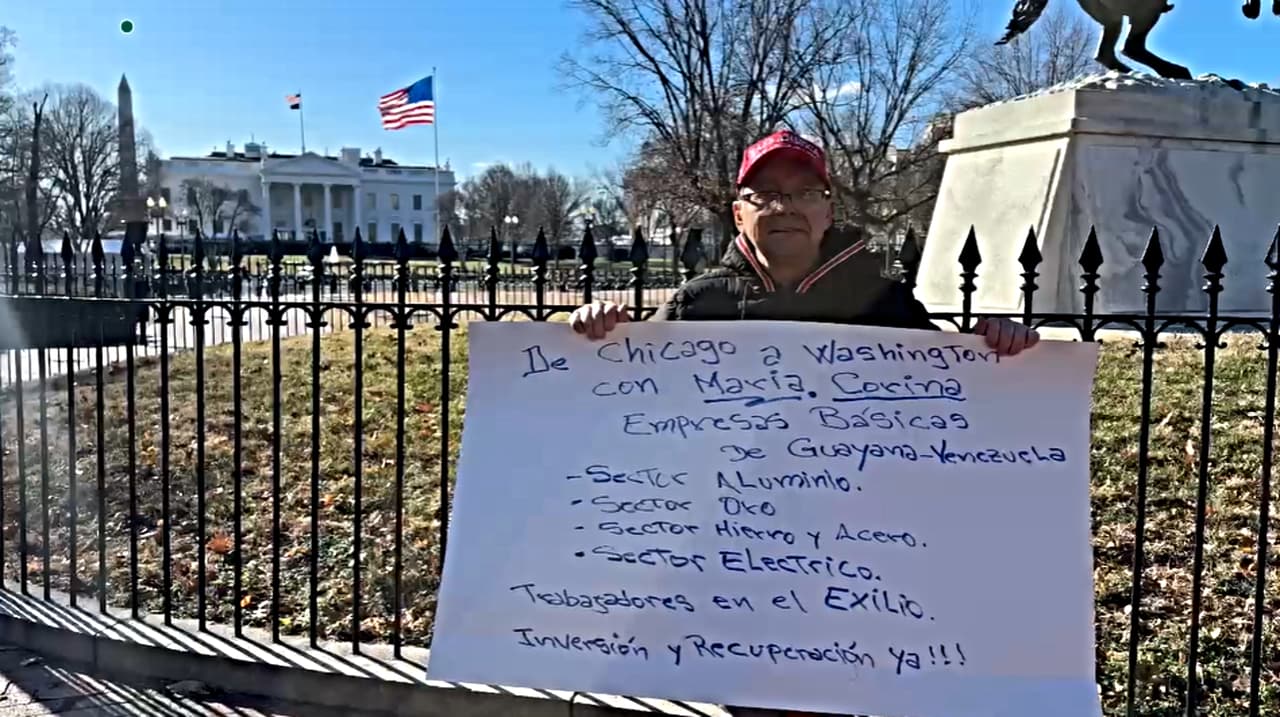 De Chicago a Washington
con María. Corina
Empresas Básicas
De Guayana-Venezuela
-Sector Aluminio.
-Sector Oro
-Sector Hierro y Acero.
-Sector Electrico.
Trabajadores en el Exilio.
Inversión y Recuperación ya!!!